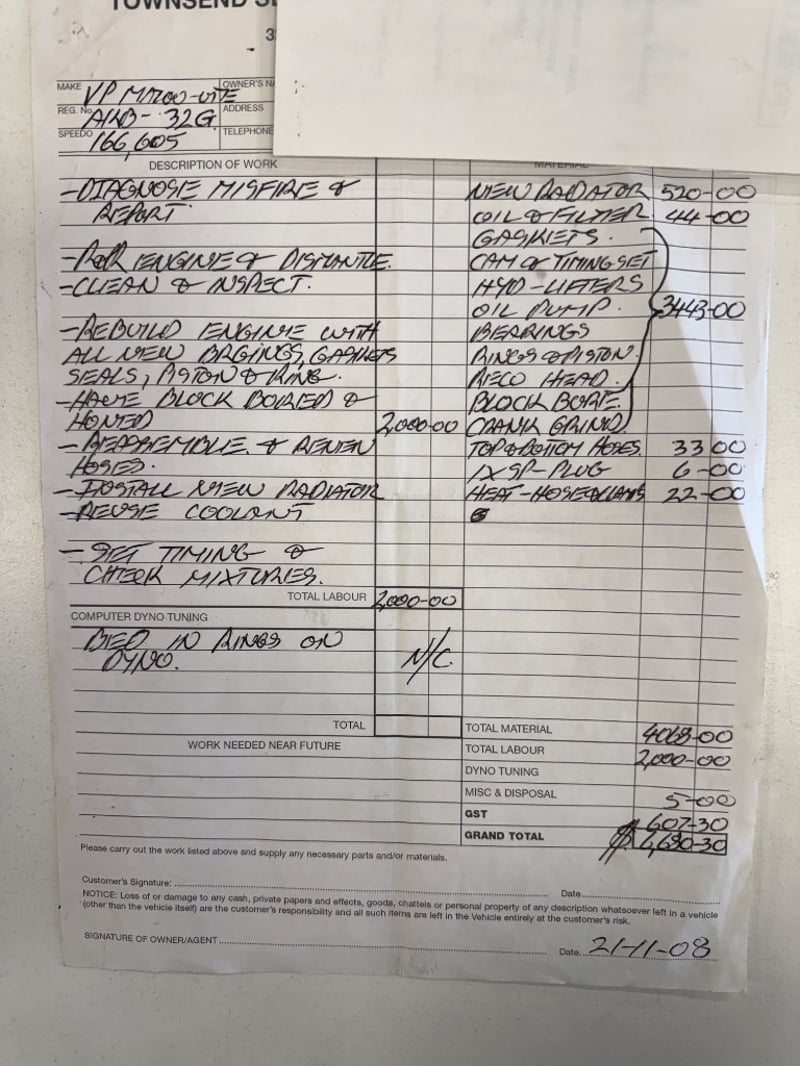 TOWNSEND
MAKE VP MAROO-UTE OWNER'S NA
REG. No. ADDRESS
SPEEDO 166,605 TELEPHONE
DESCRIPTION OF WORK MATERIAL
-DIAGNOSE MISFIRE & NEW RADIATOR 520-00
REPORT. OIL & FILTER 44-00
GASKETS.
ENGINE & DISMANTLE. CAM & TIMING SET
-CLEAN & INSPECT. HYD-LIFTERS
OIL PUMP. 3443-00
-REBUILD ENGINE WITH BEARINGS
ALL NEW BRGINGS, GASKETS RINGS & PISTON.
SEALS, PISTON & RING. RECO HEAD.
-HAVE BLOCK BORED & BLOCK BORE.
HONED 2,000-00 CRANK GRIND
-REASSEMBLE & RENEW TOP & BOTTOM HOSES. 33 00
HOSES. 1X SP-PLUG 6-00
-INSTALL NEW RADIATOR HEAT-HOSE&CLAMPS 22-00
-REUSE COOLANT
-SET TIMING &
CHECK MIXTURES.
TOTAL LABOUR 2,000-00
COMPUTER DYNO TUNING
BED IN RINGS ON
DYNO. N/C
TOTAL TOTAL MATERIAL 4068-00
WORK NEEDED NEAR FUTURE TOTAL LABOUR 2,000-00
DYNO TUNING
MISC & DISPOSAL 5-00
GST 607-30
GRAND TOTAL $6,680-30
Please carry out the work listed above and supply any necessary parts and/or materials.
Customer's Signature: Date
NOTICE: Loss of or damage to any cash, private papers and effects, goods, chattels or personal property of any description whatsoever left in a vehicle
(other than the vehicle itself) are the customer's responsibility and all such items are left in the Vehicle entirely at the customer's risk.
SIGNATURE OF OWNER/AGENT Date 21-11-08